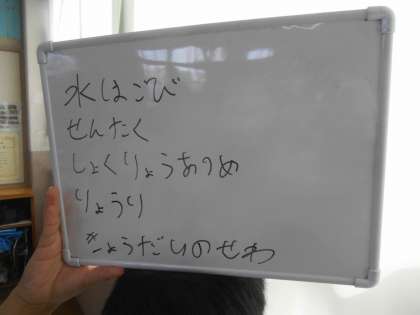 水はごび
せんたく
しょくりょうあつめ
りょうり
きょうだいのせわ